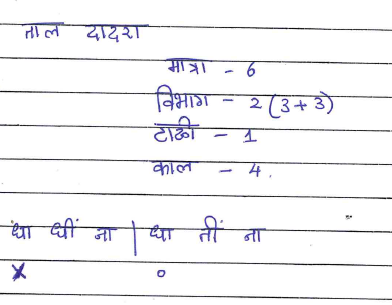 ताल दादरा
मात्रा - 6
विभाग - 2 (3+3)
टाळी - 1
काल - 4.
धा धीं ना | धा तीं ना
x o